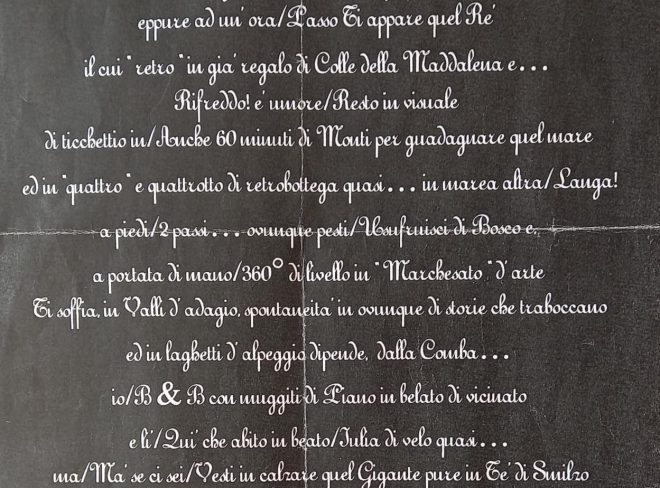 eppure ad un' ora/Passo Ti appare quel Ré
il cui "retro" in giá regalo di Colle della Maddalena e...
Rifreddo! é umore/Resto in visuale
di ticchettio in/Anche 60 minuti di Monti per guadagnare quel mare
ed in "quattro" e quattrotto di retrobottega quasi... in marea altra/Langa!
a piedi/2 passi... ovunque pesti/Usufruisci di Bosco e,
a portata di mano/360° di livello in "Marchesato" d' arte
Ti soffia, in Valli d' adagio, spontaneitá in ovunque di storie che traboccano
ed in laghetti d' alpeggio dipende, dalla Comba...
io/B & B con muggiti di Piano in belato di vicinato
e lí/Qui' che abito in beato/Julia di velo quasi...
ma/Má se ci sei/Vesti in calzare quel Gigante pure in Té di Smilzo